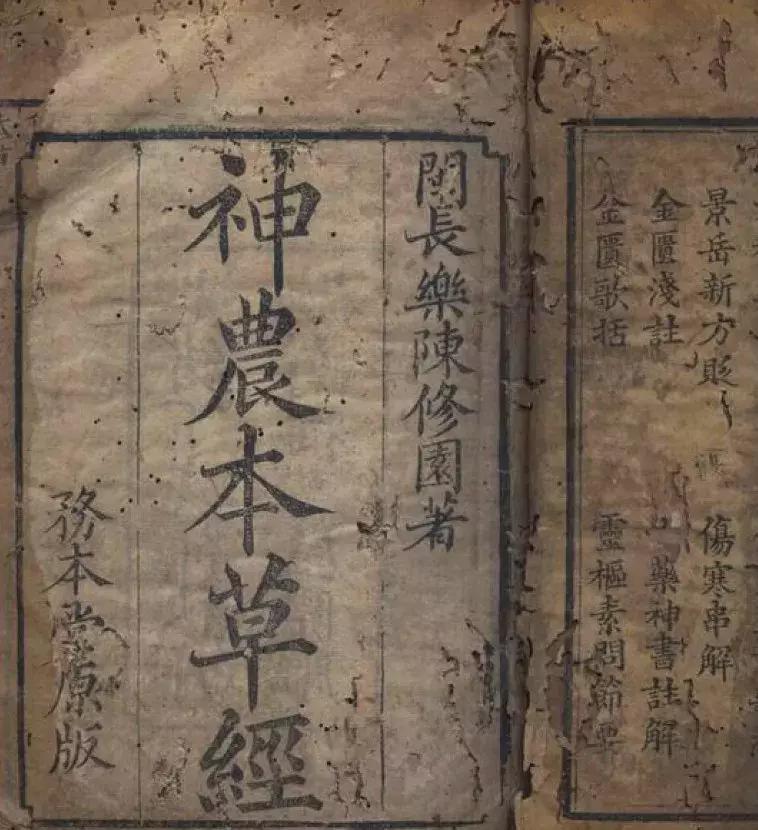 景岳新方貶 傷寒串解
金匱淺註 藥神書註解
金匱歌括 靈樞素問節要
閩長樂陳修園著
神農本草經
務本堂原版